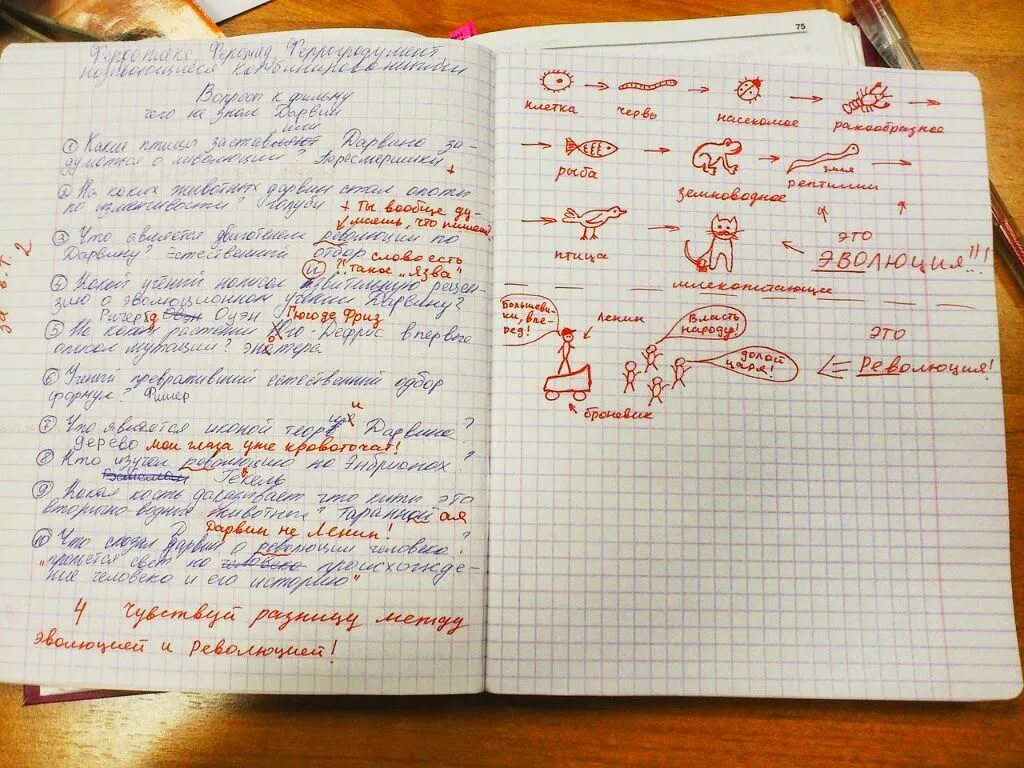 75
Вопросы к фильму
чего не знал Дарвин
или
① Какие птицы заставляют Дарвина за-
думаться о революции? Галапосмершики
+
② На каких животных дарвин ставил опыты
по изменчивости? голуби
+ ты вообще ду-
маешь, что пишешь
③ Что является двигателем революции по
Дарвину? Естественный отбор
слово есть
такое „язва"
④ Какой учёный написал
и
рецен-
зию о эволюционном учении Дарвину?
Ричард Оуэн
Гюго де Фриз
⑤ На каком растении Гюго-Дефрис впервые
описал мутации? энотера
⑥ Ученый превративший естественный отбор
формулу? Фишер
и
⑦ Что является иконой теории Дарвина?
дерево
мои глаза уже кровоточат!
⑧ Кто изучал революцию по Эмбрионах?
Гекель
⑨ Какая кость доказывает что киты это
вторично-водные животные? Таранной
ая
Дарвин не Ленин!
⑩ Что сказал дарвин о революции человека?
"прольется свет на происхожде-
ние человека и его историю"
4 чувствуй разницу между
эволюцией и революцией!
за
2
клетка
червь
насекомое
ракообразное
рыба
земноводное
змея
рептилии
птица
это
ЭВОЛЮЦИЯ!!!
млекопитающие
Большеви-
ки, впе-
рёд!
ленин
Власть
народу!
долой
царя!
броневик
это
РЕВОЛЮЦИЯ!